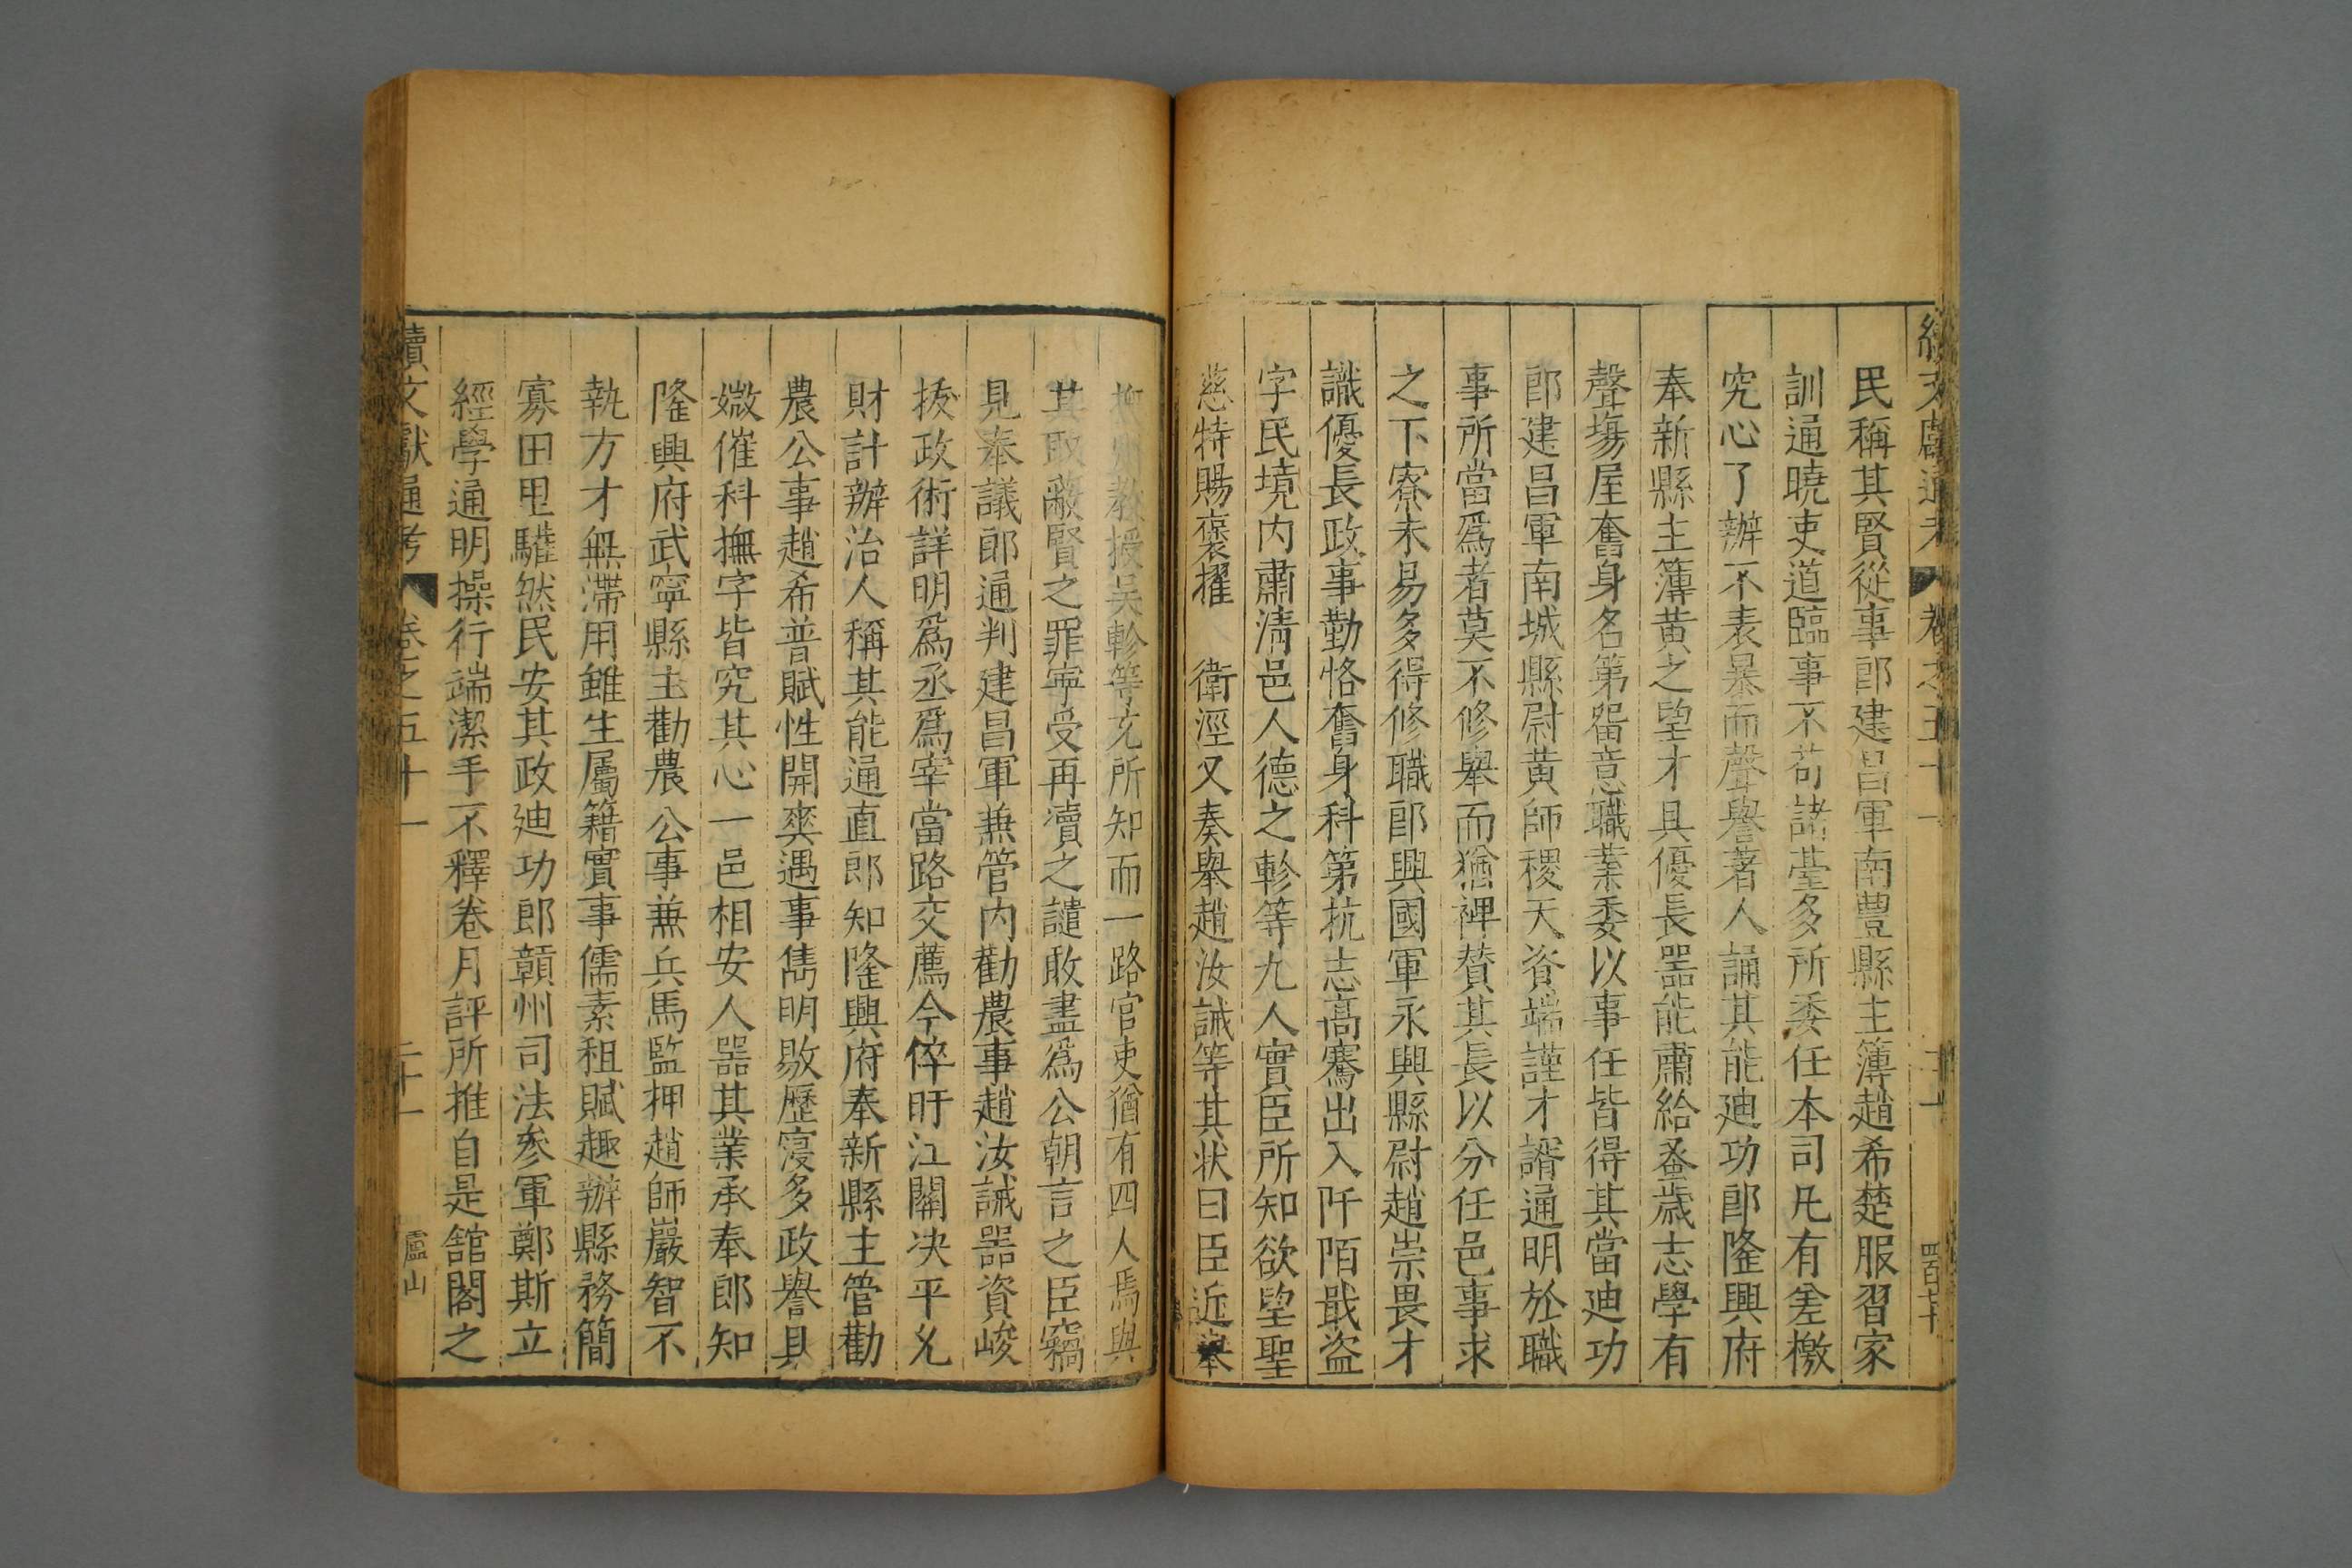 續文獻通考 卷之五十一 二十一 四百七十
民稱其賢從事郎建昌軍南豊縣主簿趙希楚服習家
訓通曉吏道臨事不苟諸臺多所委任本司凡有差檄
究心了辦不表暴而聲譽著人誦其能廸功郎隆興府
奉新縣主簿黄之望才具優長器能肅給蚤歳志學有
聲塲屋奮身名第畱意職業委以事任皆得其當廸功
郎建昌軍南城縣尉黄師稷天資端謹才諝通明於職
事所當爲者莫不修舉而猶裨賛其長以分任邑事求
之下寮未易多得修職郎興國軍永興縣尉趙崇畏才
識優長政事勤恪奮身科第抗志高騫出入阡陌戢盗
字民境内肅清邑人德之軫等九人實臣所知欲望聖
慈特賜褒擢 衛涇又奏舉趙汝誡等其状曰臣近舉
州教授吳軫等充所知而一路官吏猶有四人焉與
其取蔽賢之罪寧受再瀆之譴敢盡爲公朝言之臣竊
見奉議郎通判建昌軍兼管内勸農事趙汝誡器資峻
拔政術詳明爲丞爲宰當路交薦今倅盱江關决平允
財計辦治人稱其能通直郎知隆興府奉新縣主管勸
農公事趙希普賦性開爽遇事雋明敭歷寖多政譽具
媺催科撫字皆究其心一邑相安人器其業承奉郎知
隆興府武寧縣主勸農公事兼兵馬監押趙師巖智不
執方才無滯用雖生屬籍實事儒素租賦趣辦縣務簡
寡田里驩然民安其政廸功郎贛州司法參軍鄭斯立
經學通明操行端潔手不釋卷月評所推自是舘閣之
續文獻通考 卷之五十一 二十一 廬山